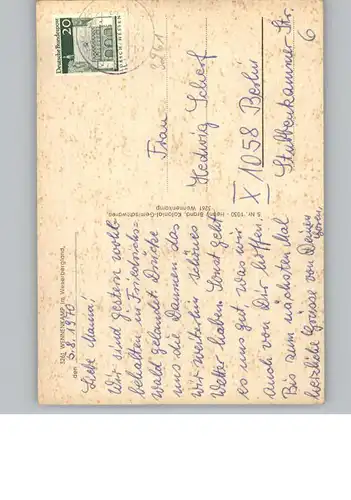 3261 WENNENKAMP im Weserbergland,
den 5.8.1970
Liebe Mama!
Wir sind gestern wohl-
behalten in Friedrichs-
wald gelandet. Drücke
uns die Daumen das
wir weiterhin schönes
Wetter haben. Sonst geht
es uns gut was wir
auch von Dir hoffen.
Bis zum nächsten Mal
herzliche Grüsse von Deinen
S. Nr. 1030 - Colonial-Gemischtwaren
3261 Wennenkamp
Deutsche Bundespost
20
LORSCH · HESSEN
Frau
Hedwig Scherf
X 1058 Berlin
Stubbenkammer Str.
6